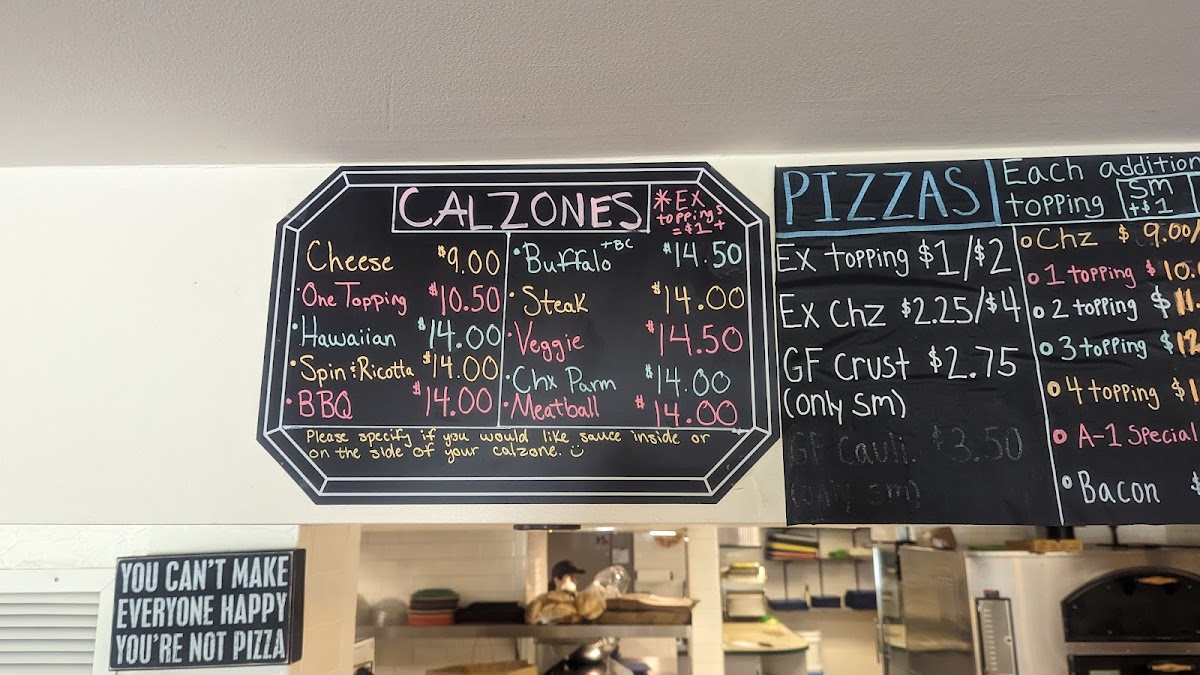 CALZONES
*EX
toppings
=$1+
Cheese $9.00
•One Topping $10.50
•Hawaiian $14.00
•Spin & Ricotta $14.00
•BBQ $14.00
•Buffalo +BC $14.50
•Steak $14.00
•Veggie $14.50
•Chx Parm $14.00
•Meatball $14.00
Please specify if you would like sauce inside or
on the side of your calzone.
PIZZAS
Each addition
topping
Sm
+$1
EX topping $1/$2
EX Chz $2.25/$4
GF Crust $2.75
(only Sm)
GF Cauli. $3.50
(only sm)
Chz $9.00/
1 topping $10.
2 topping $11.
3 topping $12
4 topping $1
A-1 Special
Bacon $
YOU CAN'T MAKE
EVERYONE HAPPY
YOU'RE NOT PIZZA